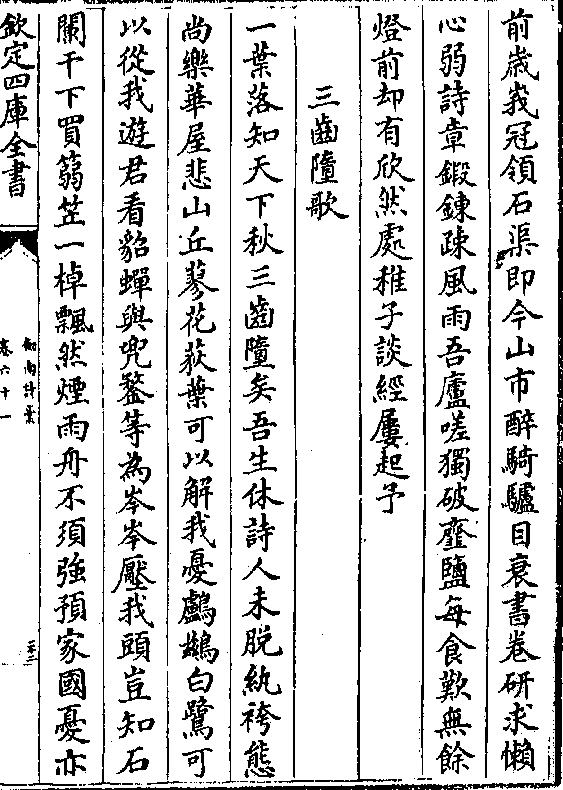 前歲峩冠領石渠即今山市醉騎驢目衰書卷研求懶
心弱詩章鍛鍊疎風雨吾廬嗟獨破虀鹽每食歎無餘
燈前却有欣然處稚子談經屢起予
三齒墮歌
一葉落知天下秋三齒墮矣吾生休詩人未脱紈袴態
尚樂華屋悲山丘蓼花荻葉可以解我憂鸕鷀白鷺可
以從我遊君看貂蟬與兜鍪等為岑岑壓我頭豈知石
闌干下買篛笠一棹飄然煙雨舟不須強預家國憂亦
欽定四庫全書
劍南詩藁
卷六十一